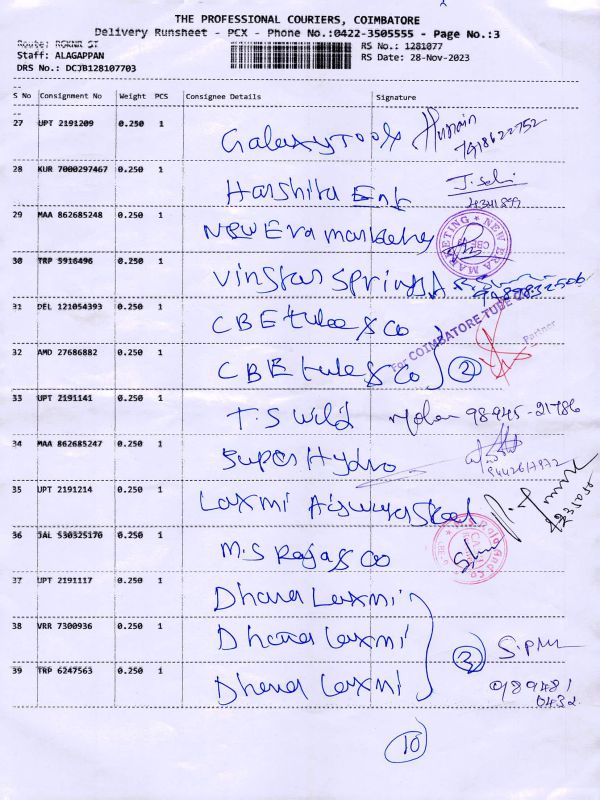 THE PROFESSIONAL COURIERS, COIMBATORE
Delivery Runsheet - PCX - Phone No.:0422-3505555 - Page No.:3
Route: RGKNR ST RS No.: 1281077
Staff: ALAGAPPAN RS Date: 28-Nov-2023
DRS No.: DCJB128107703
S No Consignment No Weight PCS Consignee Details Signature
27 UPT 2191209 0.250 1 Galaxy Tools Hussain
28 KUR 7000297467 0.250 1 Harshita Ent
29 MAA 862685248 0.250 1 New Era marketing
MARKETING NEW ERA CBE
30 TRP 5916496 0.250 1 Vinstar Springs
31 DEL 121054393 0.250 1 CBE tube & Co
For COIMBATORE TUBE
Partner
32 AMD 27686882 0.250 1 CBE tube & Co 2
33 UPT 2191141 0.250 1 T.S Weld 98945-21786
34 MAA 862685247 0.250 1 Super Hydro
35 UPT 2191214 0.250 1 Laxmi Steel
36 JAL 530325170 0.250 1 M.S Raja & Co
37 UPT 2191117 0.250 1 Dhana Laxmi
38 VRR 7300936 0.250 1 Dhana Laxmi 3
39 TRP 6247563 0.250 1 Dhana Laxmi
989481
0432
10